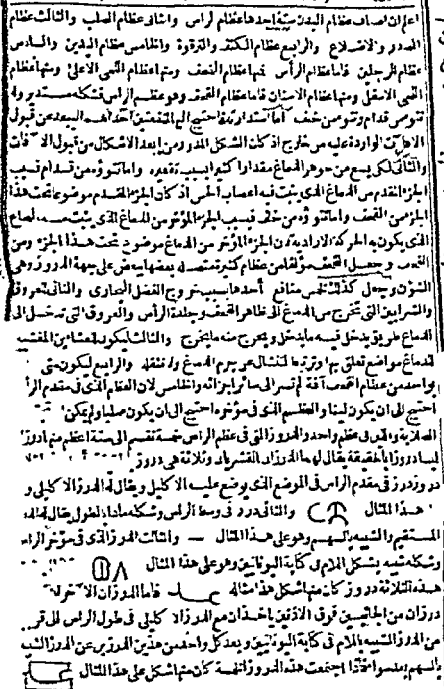 اعلم ان اصناف عظام البدن ستة احدها عظام الراس والثانى عظام الصلب والثالث عظام
الصدر والاضلاع والرابع عظام الكتف والترقوة والخامس عظام اليدين والسادس
عظام الرجلين فاما عظام الرأس فمنها عظام القحف ومنها عظام اللحى الاعلى ومنها عظام
اللحى الاسفل ومنها عظام الاسنان فاما عظام القحف وهو عظم الراس فشكله مستدير وله
نتوء من قدام ونتوء من خلف اما استدارته فاحتيج اليه لمنفعتين احداهما لبعد عن قبول
الآفات الواردة عليه من خارج اذ كان الشكل المدور من ابعد الاشكال من قبول الآفات
والثانى لكى يسع من جوهر الدماغ مقدارا كثيرا واما نتوءه من قدام فبسبب
الجزء المقدم من الدماغ الذى ينبت منه اعصاب الحس اذ كان الجزء المقدم موضوعا تحت هذا
الجزء من القحف واما نتوءه من خلف فبسبب الجزء المؤخر من الدماغ الذى ينبت منه النخاع
الذى يكون به الحركة الارادية لان الجزء المؤخر من الدماغ موضوع تحت هذا الجزء من
القحف وجعل القحف مؤلفا من عظام كثيرة متصلة بعضها ببعض على جهة الدروز وهى
الشؤن وجعل كذلك لخمس منافع أحدها بسبب خروج الفضل البخارى والثانى للعروق
والشرايين التى تخرج من الدماغ الى ظاهر القحف وجلدة الرأس والعروق التى تدخل الى
الدماغ طريق يدخل فيه ما يدخل ويخرج منه ما يخرج والثالث ليكون للغشاء المغشيه
للدماغ مواضع تتعلق بها وترتبط لتشال عن جرم الدماغ ولا تثقله والرابع ليكون متى
بواحد من عظام القحف آفة لم تسر الى سائر اجزائه والخامس لان العظم الذى فى مقدم الرأ
احتيج الى ان يكون لينا والعظم الذى فى مؤخره احتيج الى ان يكون صلبا ولم يمكن
الصلابة واللين فى عظم واحد والدروز التى فى عظم الراس خمسة تنقسم الى ستة اعظم منها درزا
ليسا درزا بالحقيقة يقال لهما الدرزان القشريان وثلاثة هى دروز
درز فى مقدم الراس فى الموضع الذى يوضع عليه الاكليل ويقال له الدرز الاكليلى و
هذا المثال والثانى درز فى وسط الراس وشكله مارا بالطول يقال له الد
المستقيم والشبيه بالسهم وهو على هذا المثال — والثالث الدرز الذى فى مؤخر الرا
وشكله شبيه بشكل اللام فى كتابة اليونانيين وهو على هذا المثال
هذه الثلاثة دروز كان منها شكل هذا مثاله فاما الدرزان الآخران
درزان من الجانبين فوق الاذنين ياخذان مع الدرز الاكليلى فى طول الراس الى قر
من الدرز الشبيه باللام فى كتابة اليونانيين وبعد كل واحد من هذين الدرزين عن الدرز الشبيه
بالسهم بعد سواء فاذا اجتمعت هذه الدروز الخمسة كان منها شكل على هذا المثال